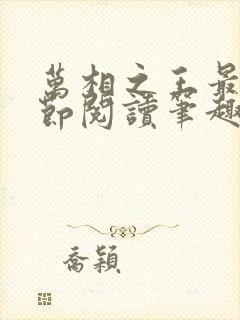 萬相之王最
節閱讀筆趣
喬穎